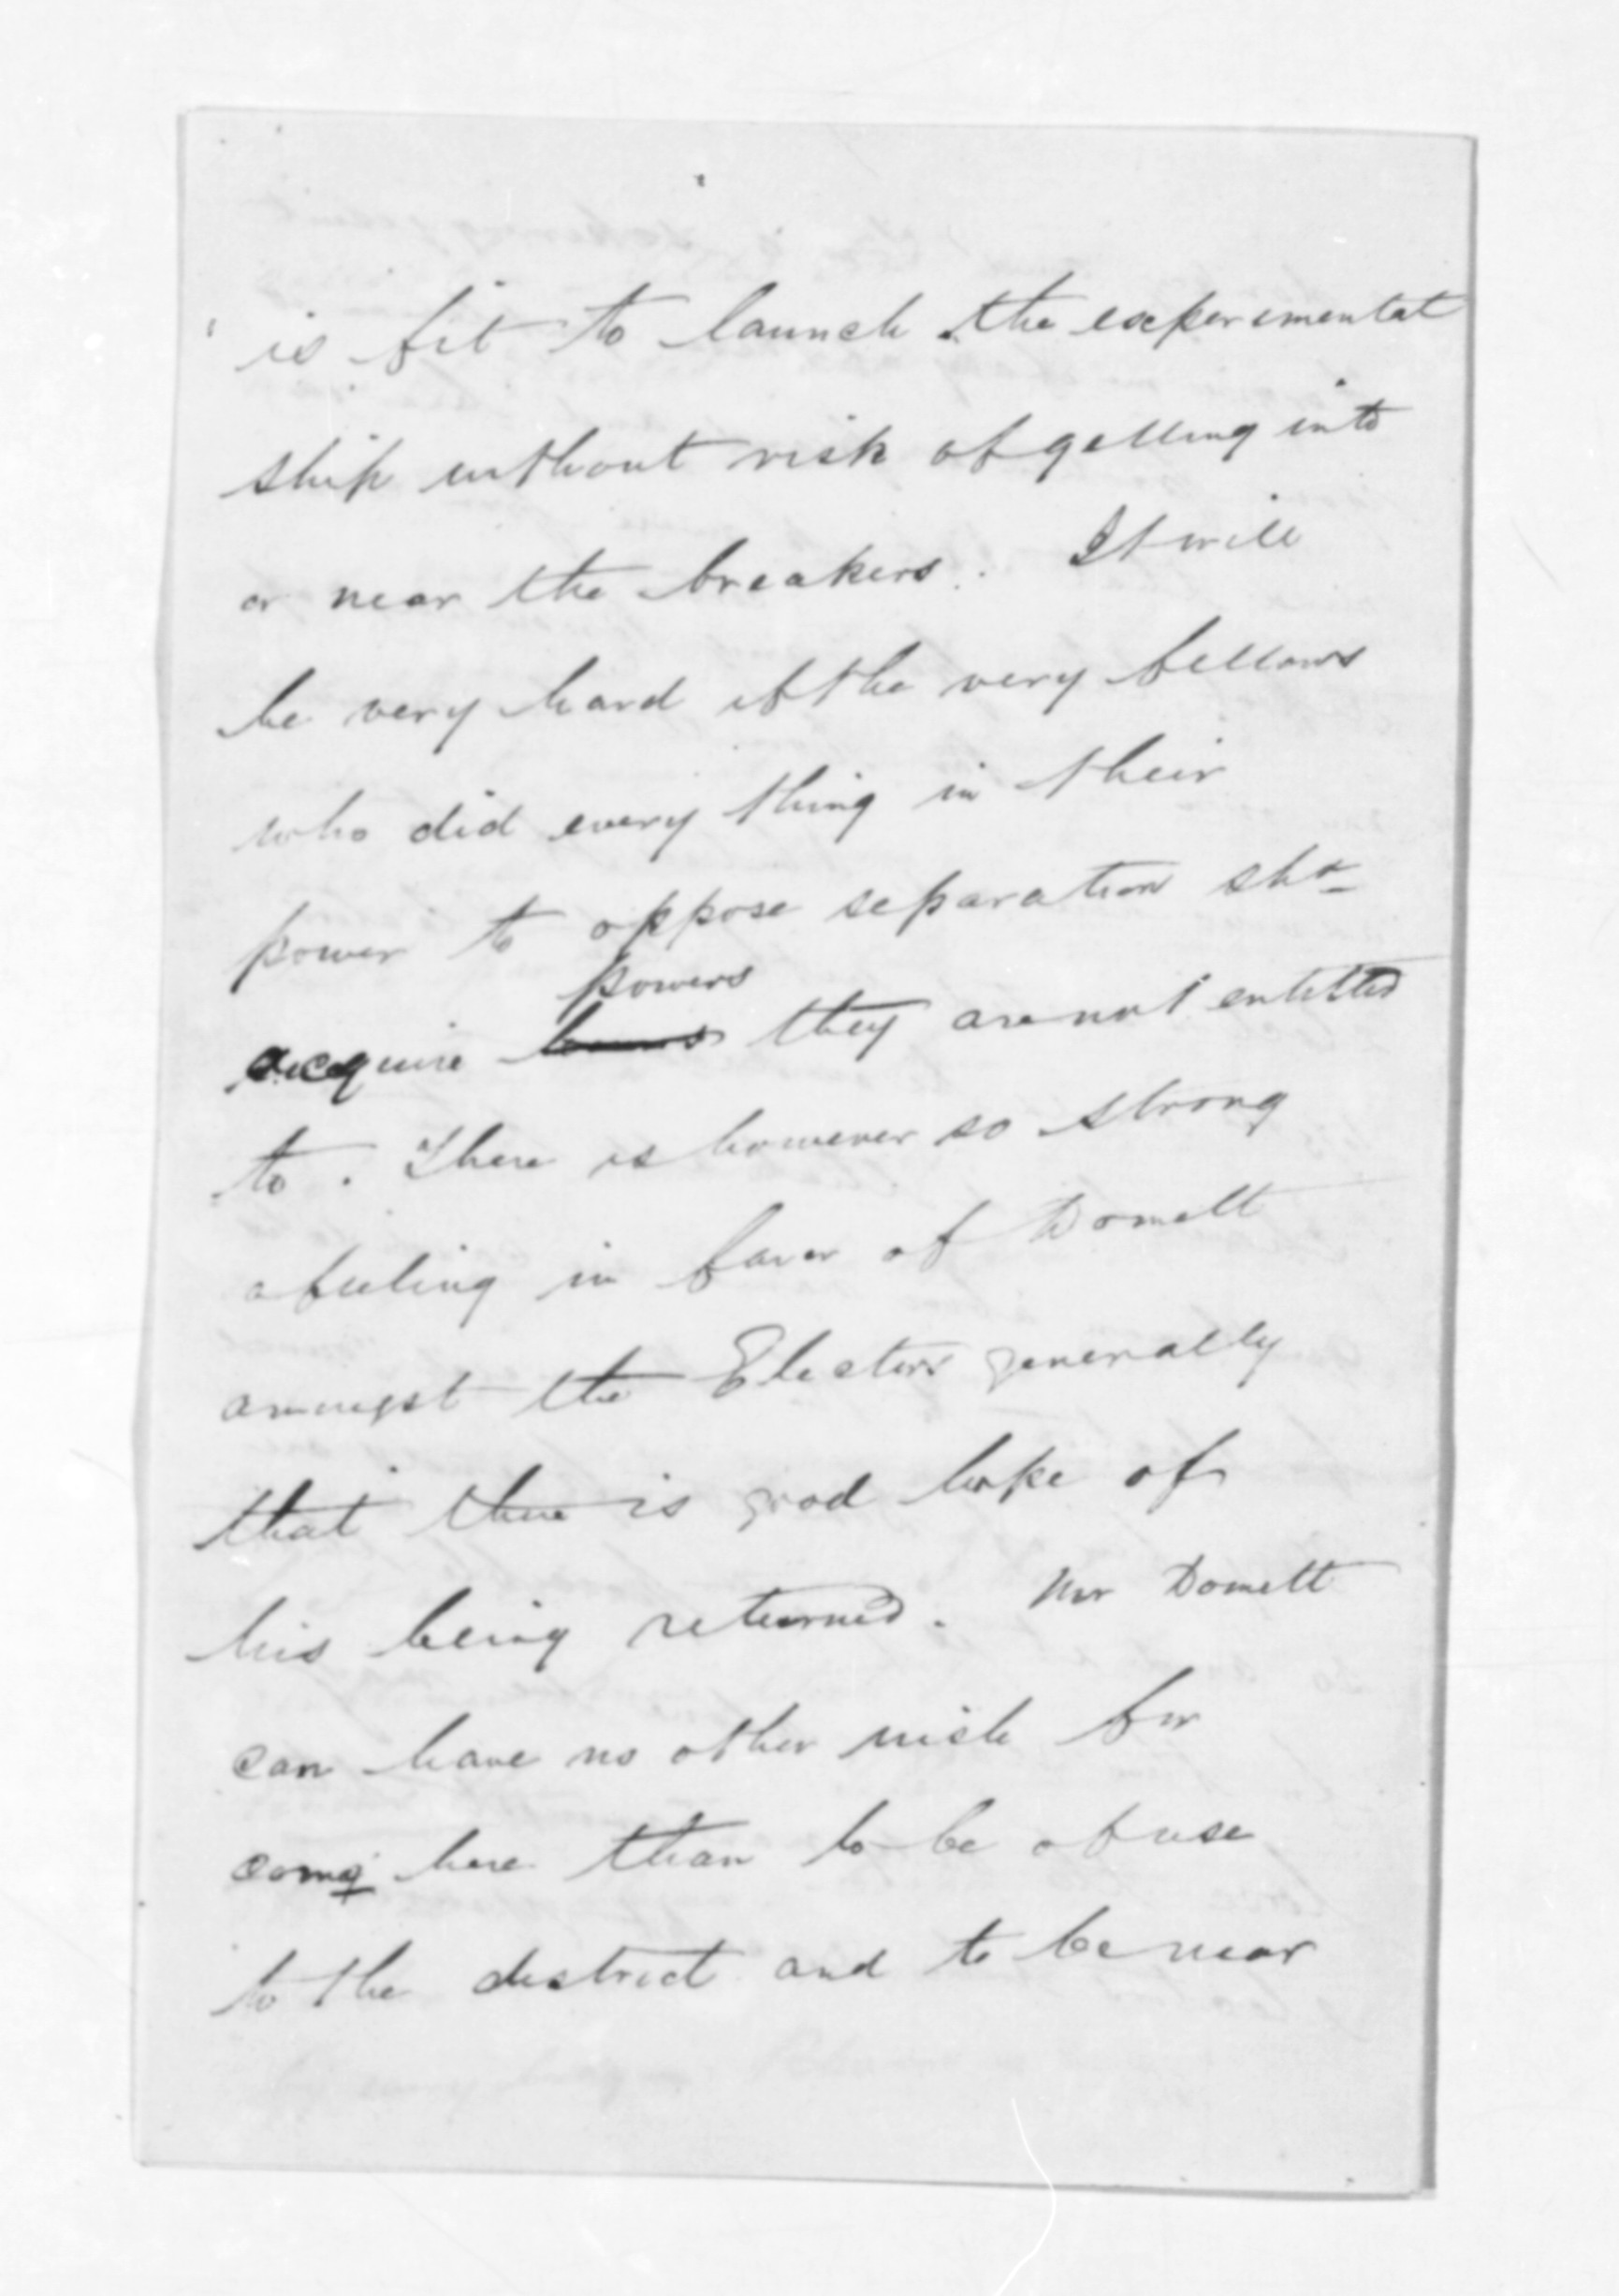 is fit to launch the experimental
ship without risk of getting into
or near the breakers. It will
be very hard if the very fellows
who did every thing in their
power to oppose separation shd
powers
acquire they are not entitled
to. There is however so strong
a feeling in favor of Domett
amongst the Electors generally
that there is good hope of
his being returned. Mr Domett
can have no other wish for
comg here than to be of use
to the district and to be near